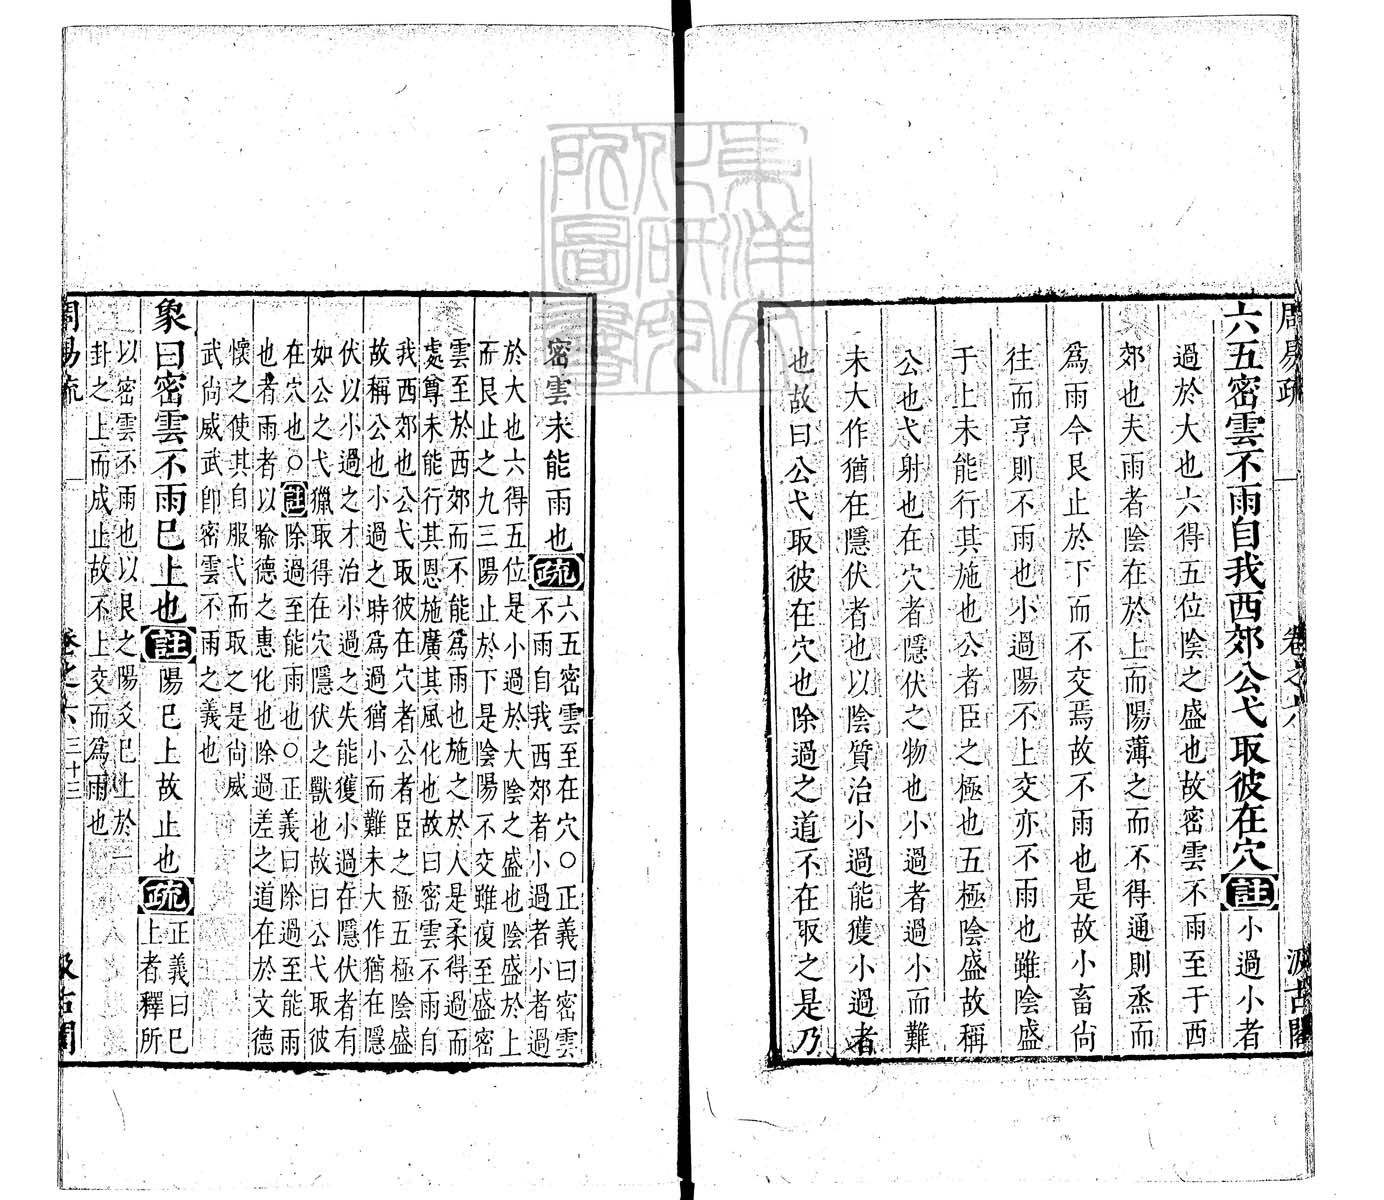 周易疏 卷之六 汲古閣
六五密雲不雨自我西郊公弋取彼在穴註小過小者
過於大也六得五位陰之盛也故密雲不雨至于西
郊也夫雨者陰在於上而陽薄之而不得通則烝而
爲雨今艮止於下而不交焉故不雨也是故小畜尚
往而亨則不雨也小過陽不上交亦不雨也雖陰盛
于上未能行其施也公者臣之極也五極陰盛故稱
公也弋射也在穴者隱伏之物也小過者過小而難
未大作猶在隱伏者也以陰質治小過能獲小過者
也故曰公弋取彼在穴也除過之道不在取之是乃
密雲未能雨也疏六五密雲至在穴○正義曰密雲
不雨自我西郊者小過者小者過
於大也六得五位是小過於大陰之盛也陰盛於上
而艮止之九三陽止於下是陰陽不交雖復至盛密
雲至於西郊而不能爲雨也施之於人是柔得過而
處尊未能行其恩施廣其風化也故曰密雲不雨自
我西郊也公弋取彼在穴者公者臣之極五極陰盛
故稱公也小過之時爲過猶小而難未大作猶在隱
伏以小過之才治小過之失能獲小過在隱伏者有
如公之弋獵取得在穴隱伏之獸也故曰公弋取彼
在穴也○註除過至能雨也○正義曰除過至能雨
也者雨者以喻德之惠化也除過差之道在於文德
懷之使其自服弋而取之是尚威
武尚威武卽密雲不雨之義也
象曰密雲不雨已上也註陽已上故止也疏正義曰已
上者釋所
以密雲不雨也以艮之陽爻已上於一
卦之上而成止故不上交而爲雨也
周易疏 卷之六 三十三 汲古閣
東洋文化研究所圖書